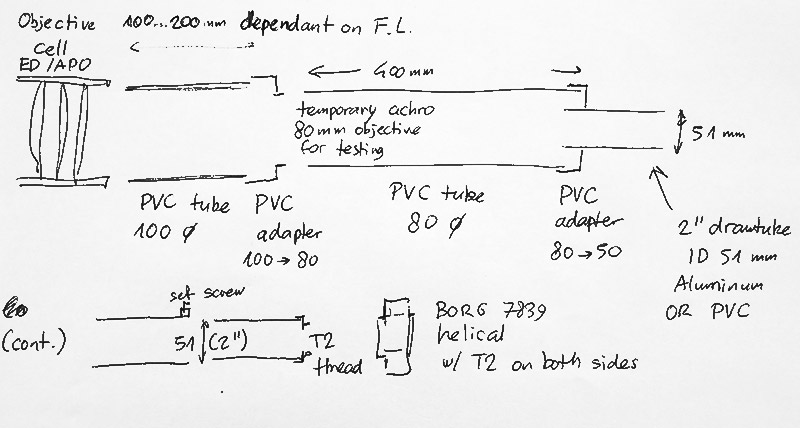 Objective
cell
ED/APO
100...200mm dependant on F.L.
400mm
temporary achro
80mm objective
for testing
51 mm
PVC tube
100 ø
PVC
adapter
100→80
PVC tube
80 ø
PVC
adapter
80→50
2" drawtube
ID 51 mm
Aluminum
OR PVC
(cont.)
set screw
51 (2")
T2
thread
BORG 7839
helical
w/ T2 on both sides